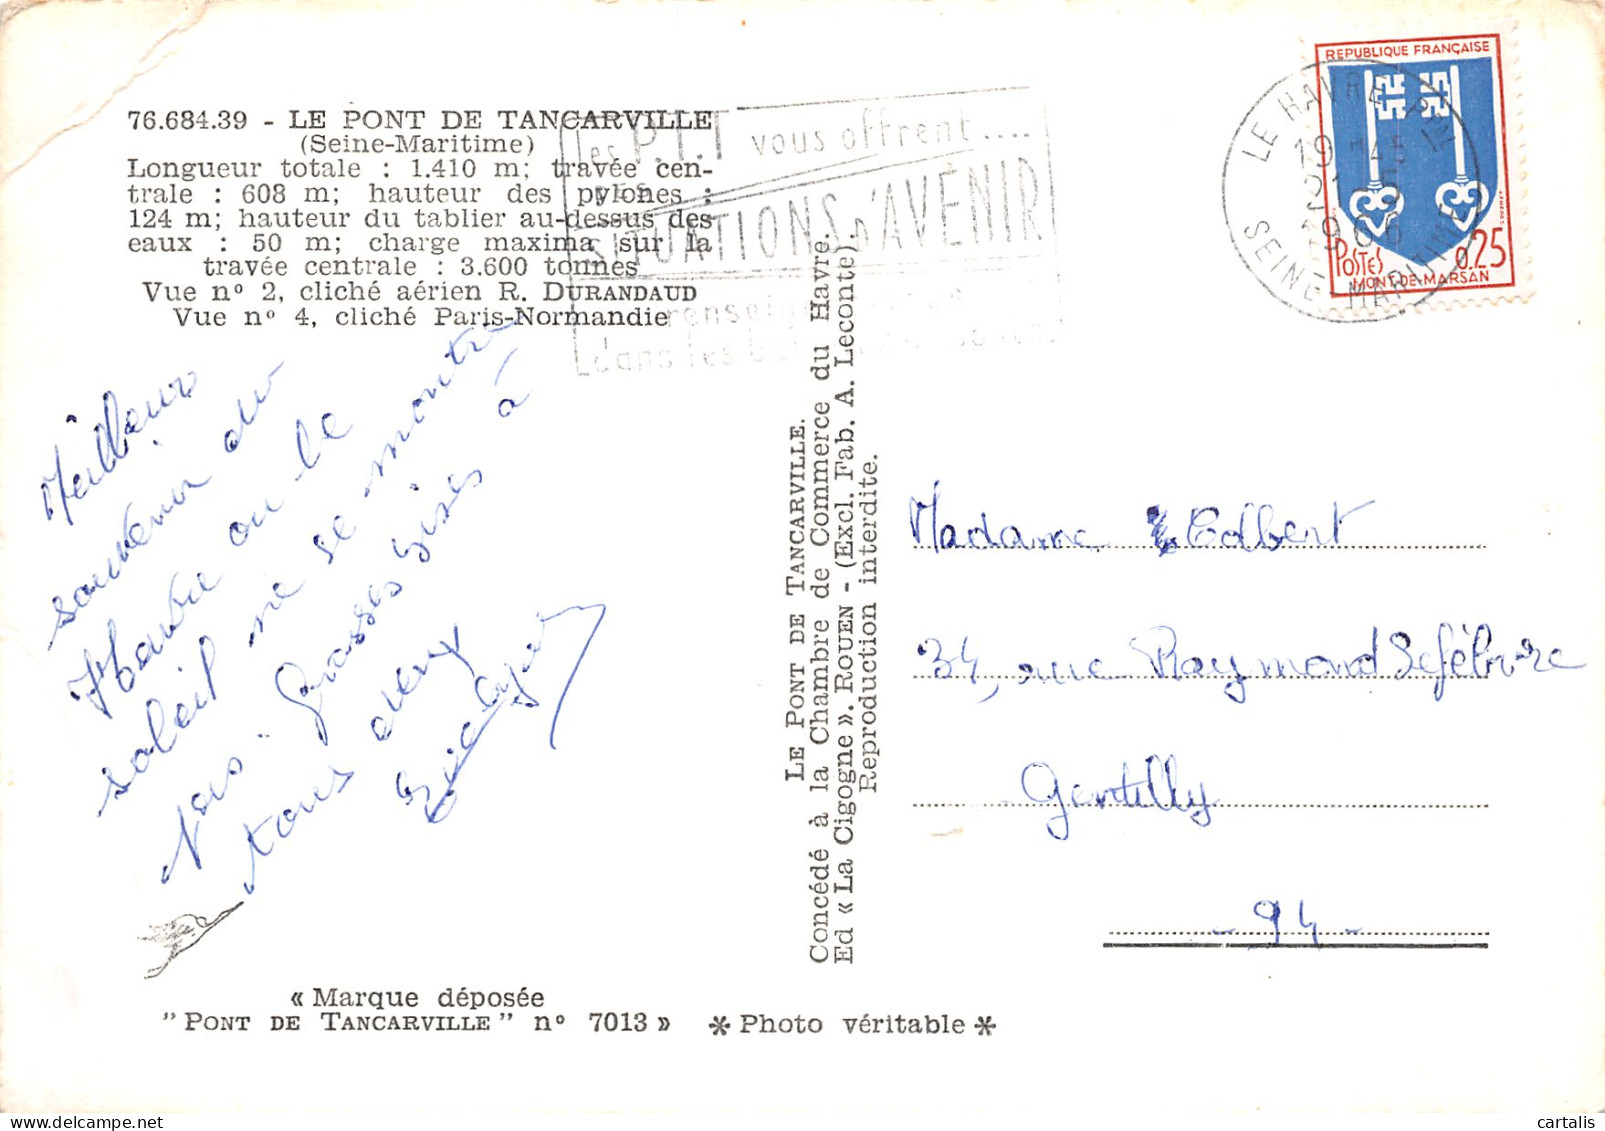 76.684.39 - LE PONT DE TANCARVILLE
(Seine-Maritime)
Longueur totale : 1.410 m; travée cen-
trale : 608 m; hauteur des pylones :
124 m; hauteur du tablier au-dessus des
eaux : 50 m; charge maxima sur la
travée centrale : 3.600 tonnes
Vue n° 2, cliché aérien R. DURANDAUD
Vue n° 4, cliché Paris-Normandie
les P.T.T vous offrent ....
des
SITUATIONS D'AVENIR
dans les
REPUBLIQUE FRANÇAISE
POSTES 0.25
MONT-DE-MARSAN
LE HAVRE PPAL
SEINE-MARITIME
19 H45
1966
Meilleurs
souvenir du
Havre ou le
soleil ne se montre
pas. Grosses bises à
tous deux
LE PONT DE TANCARVILLE.
Concédé à la Chambre de Commerce du Havre.
Ed « La Cigogne ». ROUEN - (Excl. Fab. A. Leconte).
Reproduction interdite.
Madame Colbert
34, rue Raymond Lefèbvre
Gentilly
- 94 -
« Marque déposée
"PONT DE TANCARVILLE" n° 7013 »
* Photo véritable *
cartalis delcampe.net